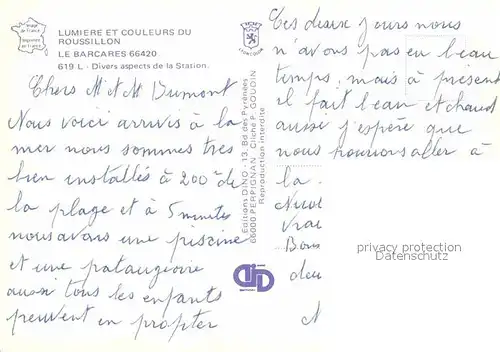 LUMIERE ET COULEURS DU
ROUSSILLON
LE BARCARES 66420
619 L - Divers aspects de la Station.
Chers M et M Dumont
Nous voici arrivés à la
mer nous sommes très
bien installés à 200 m de
la plage et à 5 minutes
nous avons une piscine
et une pataugeoire
aussi tous les enfants
peuvent en profiter
Editions DINO - 13, Bd des Pyrénées
66000 PERPIGNAN - Cliché P. GOUDIN
Reproduction interdite
Ces deux jours nous
n'avons pas eu beau
temps, mais à présent
il fait beau et chaud
aussi j'espère que
nous pourrons aller à
la
Vrai
Bons
deu
privacy protection
Datenschutz